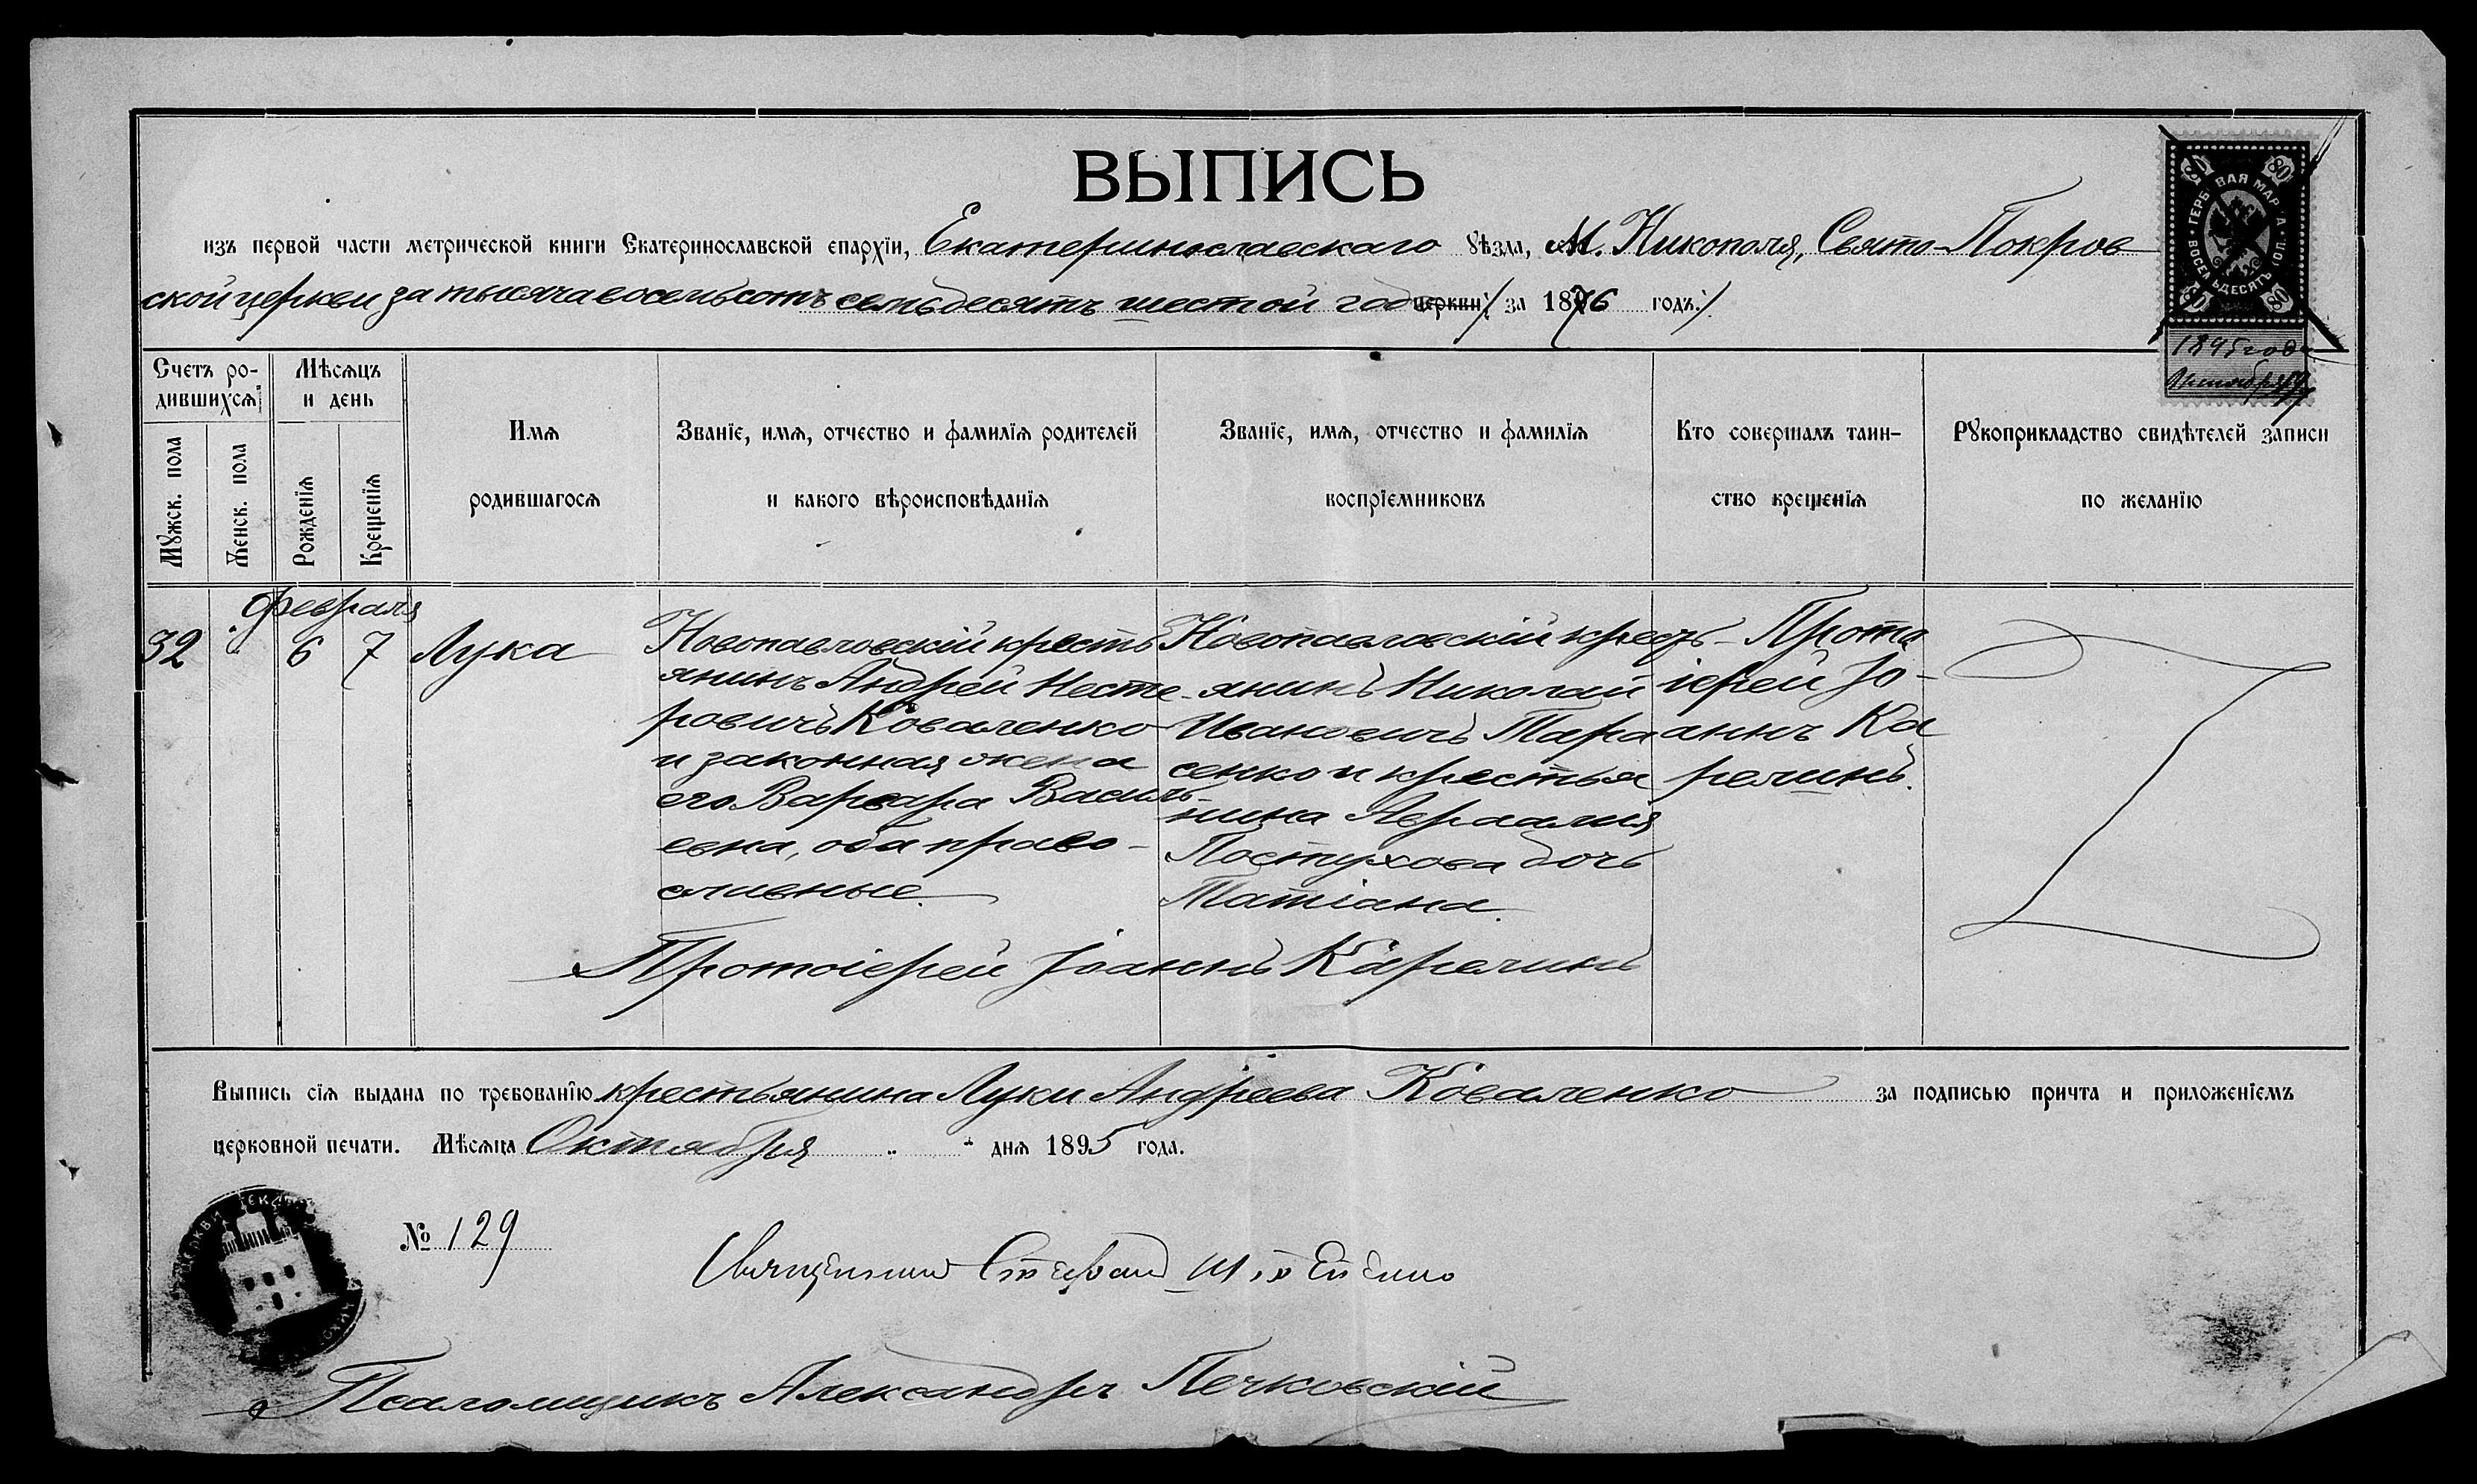 ВЫПИСЬ
изъ первой части метрической книги Екатеринославской епархіи, Екатеринославскаго Уѣзда, М. Никополя, Свято-Покров
ской церкви за тысяча восемьсотъ семьдесятъ шестой год церкви/ за 1876 годъ./
ГЕРБОВАЯ МАРКА
ВОСЕМЬДЕСЯТЪ
80
80
80
80
1895 года
Счетъ ро-
дившихся
Мужск. пола
Женск. пола
Мѣсяцъ
и день
Рожденія
Крещенія
Имя
родившагося
Званіе, имя, отчество и фамилія родителей
и какого вѣроисповѣданія
Званіе, имя, отчество и фамилія
воспріемниковъ
Кто совершалъ таин-
ство крещенія
Рукоприкладство свидѣтелей записи
по желанію
февраля
32
6
7
Лука
Новопавловскій кресть
янинъ Андрей Несте-
ровичъ Коваленко
и законная жена
его Варвара Василь-
евна, оба право-
славные.
Новопавловскій кресть-
янинъ Николай
Ивановичъ Тара
сенко и крестья
нина
Пастухова дочь
Татіана.
Прото
іерей Іо-
аннъ Ка
релинъ.
Протоіерей Іоаннъ Карелинъ
Выпись сія выдана по требованію крестьянина Луки Андреева Коваленко за подписью причта и приложеніемъ
церковной печати. Мѣсяца Октября " " дня 1895 года.
№ 129
Священникъ Стефанъ
Псаломщикъ Александръ Печковскій